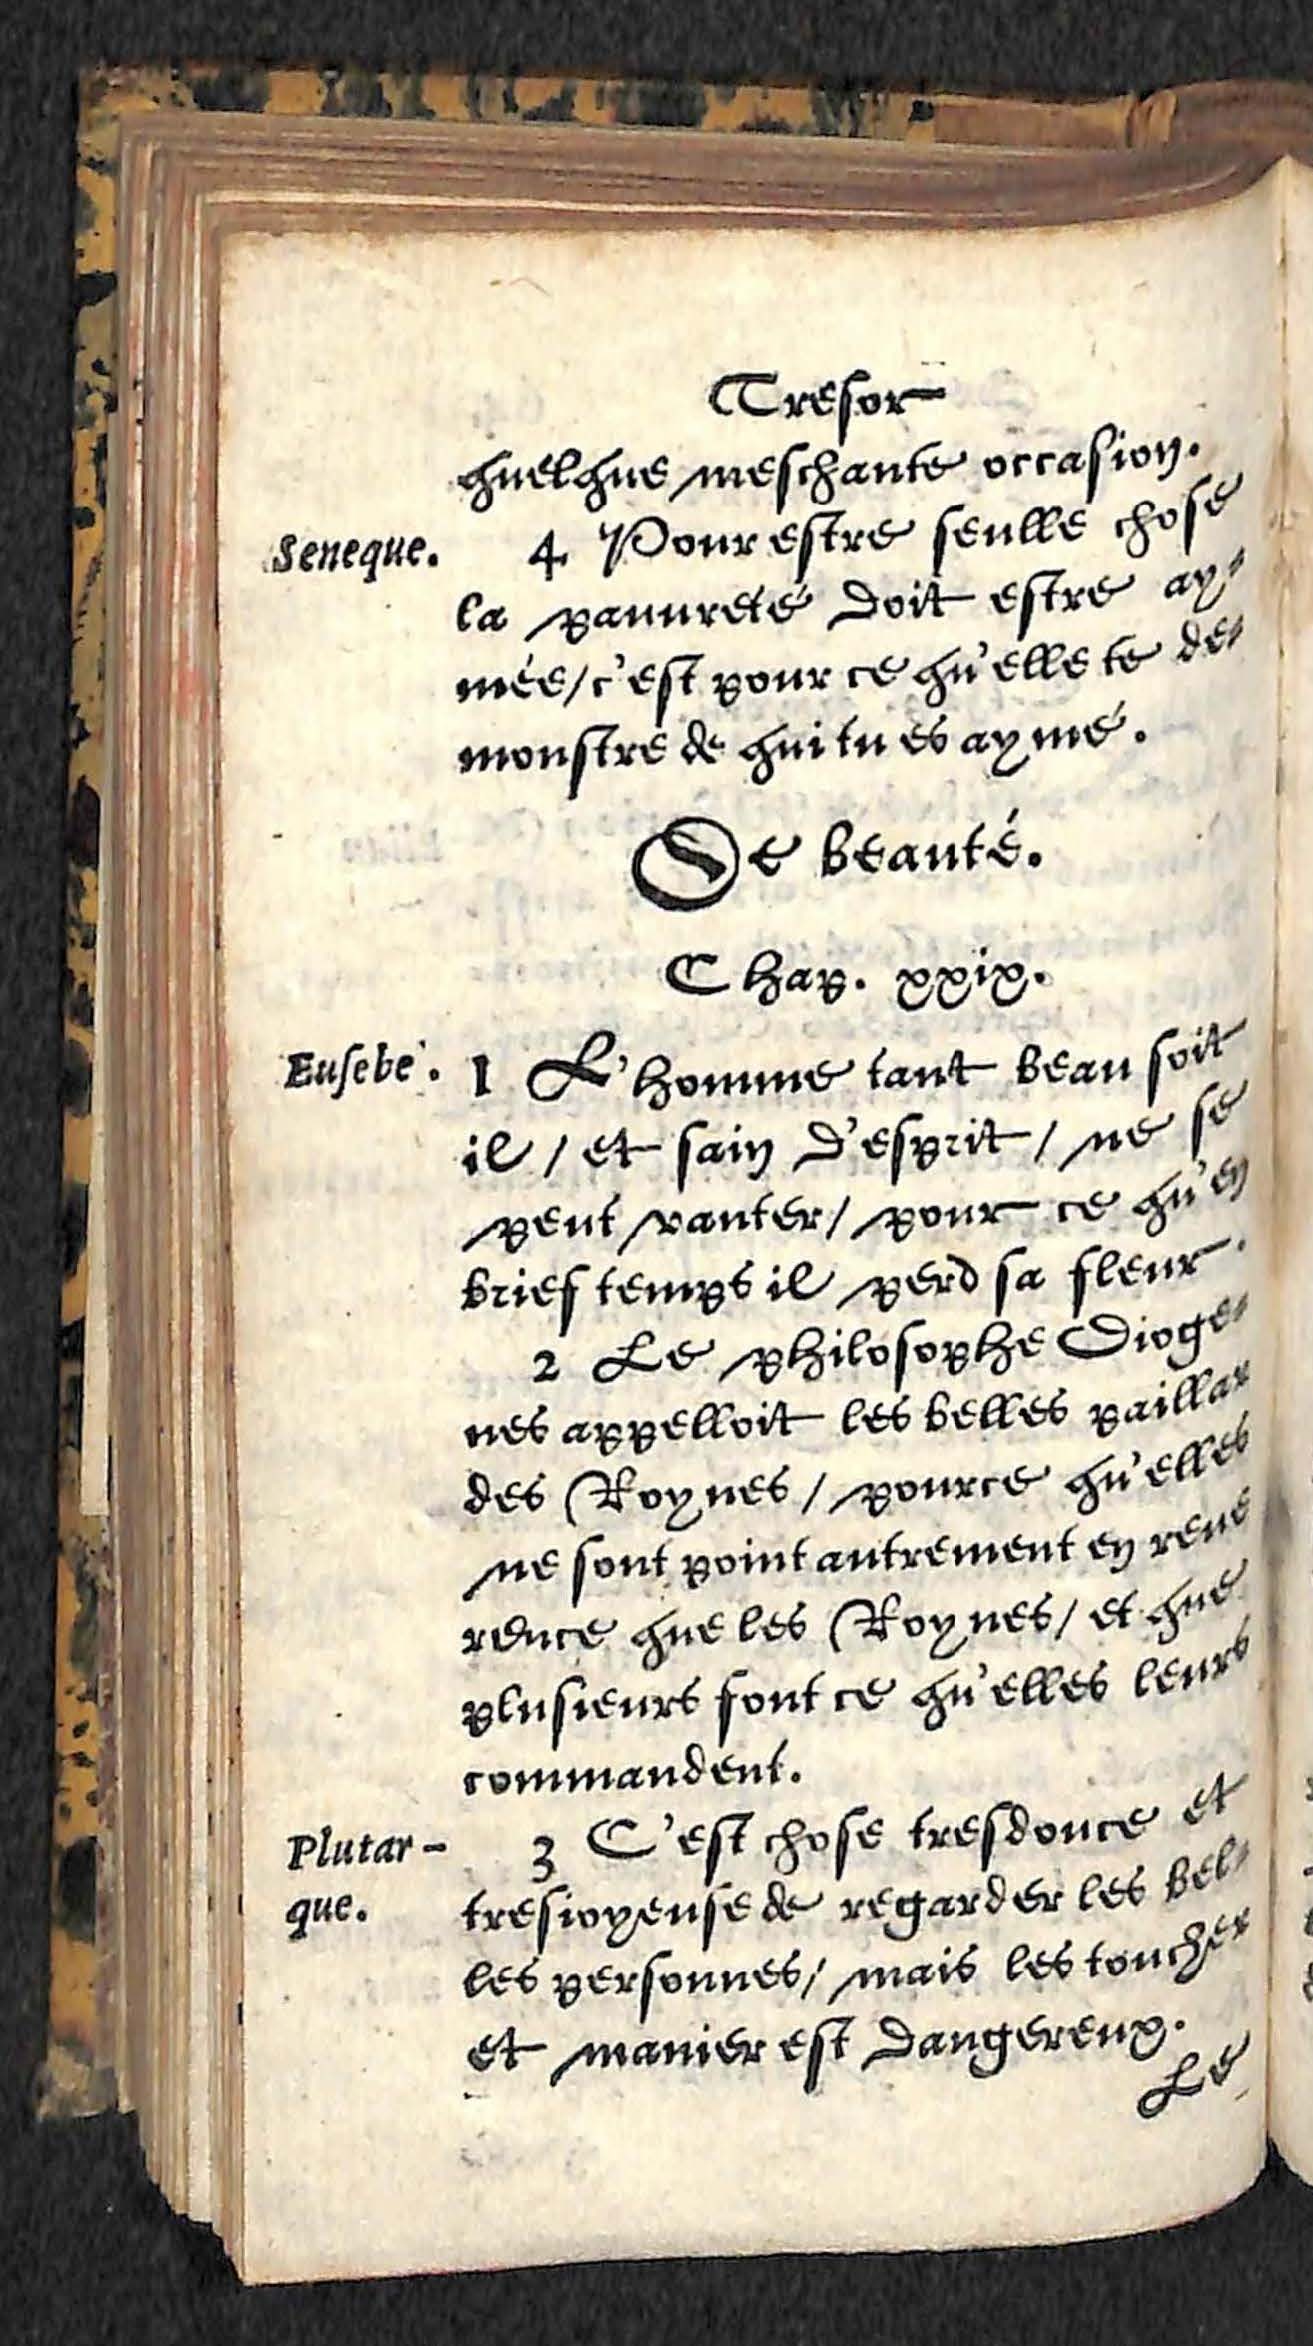 Tresor
quelque meschante occasion.
Seneque. 4 Pour estre seulle chose
la pauureté doit estre ay-
mée/c'est pour ce qu'elle te de-
monstre de qui tu es aymé.
De beauté.
Chap. xxix.
Eusebe. 1 L'homme tant beau soit
il / et sain d'esprit / ne se
peut vanter / pour ce qu'en
brief temps il perd sa fleur.
2 Le philosophe Dioge-
nes appelloit les belles paillar
des Roynes / pource qu'elles
ne sont point autrement en reue
rence que les Roynes / et que
plusieurs font ce qu'elles leurs
commandent.
Plutar-
que.
3 C'est chose tresdouce et
tresioyeuse de regarder les bel-
les personnes / mais les toucher
et manier est dangereux.
Le